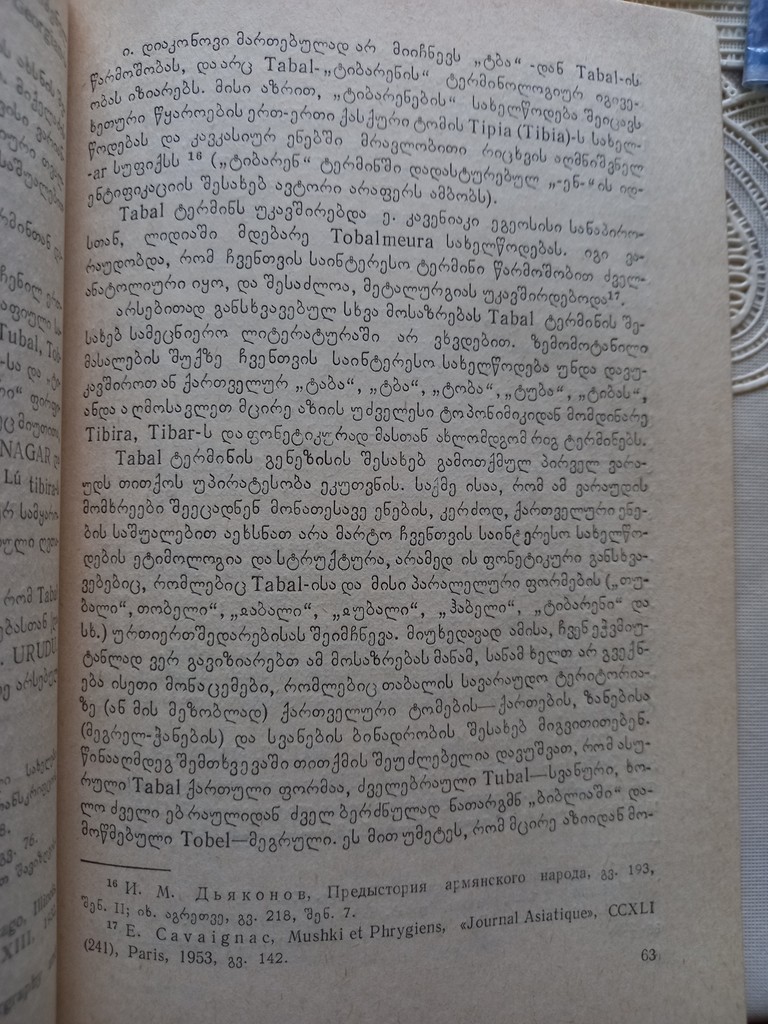 ი. დიაკონოვი მართებულად არ მიიჩნევს „ტბა“ -დან Tabal-ის
წარმოშობას, და არც Tabal-„ტიბარენის“ ტერმინოლოგიურ იგივე-
ობას იზიარებს. მისი აზრით, „ტიბარენების“ სახელწოდება შეიცავს
ხეთური წყაროების ერთ-ერთი ქასქური ტომის Tipia (Tibia)-ს სახელ-
წოდებას და კავკასიურ ენებში მრავლობითი რიცხვის აღმნიშვნელ
-ar სუფიქსს ¹⁶ („ტიბარენ“ ტერმინში დადასტურებულ „-ენ-“ის იდ-
ენტიფიკაციის შესახებ ავტორი არაფერს ამბობს).
Tabal ტერმინს უკავშირებდა ე. კავენიაკი ეგეოსისი სანაპირო-
სთან, ლიდიაში მდებარე Tobalmeura სახელწოდებას. იგი ვა-
რაუდობდა, რომ ჩვენთვის საინტერესო ტერმინი წარმოშობით ძველ-
ანატოლიური იყო, და შესაძლოა, მეტალურგიას უკავშირდებოდა¹⁷.
არსებითად განსხვავებულ სხვა მოსაზრებას Tabal ტერმინის შე-
სახებ სამეცნიერო ლიტერატურაში არ ვხვდებით. ზემომოტანილი
მასალების შუქზე ჩვენთვის საინტერესო სახელწოდება უნდა დავუ-
კავშიროთ ან ქართველურ „ტაბა“, „ტბა“, „ტობა“, „ტუბა“, „ტიბას“,
ანდა აღმოსავლეთ მცირე აზიის უძველესი ტოპონიმიკიდან მომდინარე
Tibira, Tibar-ს და ფონეტიკურად მასთან ახლომდგომ რიგ ტერმინებს.
Tabal ტერმინის გენეზისის შესახებ გამოთქმულ პირველ ვარა-
უდს თითქოს უპირატესობა ეკუთვნის. საქმე ისაა, რომ ამ ვარაუდის
მომხრეები შეეცადნენ მონათესავე ენების, კერძოდ, ქართველური ენე-
ბის საშუალებით აეხსნათ არა მარტო ჩვენთვის საინტერესო სახელწო-
დების ეტიმოლოგია და სტრუქტურა, არამედ ის ფონეტიკური განსხვა-
ვებებიც, რომლებიც Tabal-ისა და მისი პარალელური ფორმების („თუ-
ბალი“, თობელი“, „ჲაბალი“, „ჲუბალი“, „ჰაბელი“, „ტიბარენი“ და
სხ.) ურთიერთშედარებისას შეიმჩნევა. მიუხედავად ამისა, ჩვენ ეჭვმიუ-
ტანლად ვერ გავიზიარებთ ამ მოსაზრებას მანამ, სანამ ხელთ არ გვექნ-
ება ისეთი მონაცემები, რომლებიც თაბალის სავარაუდო ტერიტორია-
ზე (ან მის მეზობლად) ქართველური ტომების—ქართების, ზანებისა
(მეგრელ-ჭანების) და სვანების ბინადრობის შესახებ მიგვითითებენ.
წინააღმდეგ შემთხვევაში თითქმის შეუძლებელია დავუშვათ, რომ ასუ-
რული Tabal ქართული ფორმაა, ძველებრაული Tubal—სვანური, ხო-
ლო ძველი ებრაულიდან ძველ ბერძნულად ნათარგმნ „ბიბლიაში“ და-
მოწმებული Tobel—მეგრული. ეს მით უმეტეს, რომ მცირე აზიიდან მო-
¹⁶ И. М. Дьяконов, Предыстория армянского народа, გვ. 193,
შენ. II; იხ. აგრეთვე, გვ. 218, შენ. 7.
¹⁷ E. Cavaignac, Mushki et Phrygiens, «Journal Asiatique», CCXLI
(241), Paris, 1953, გვ. 142.
63